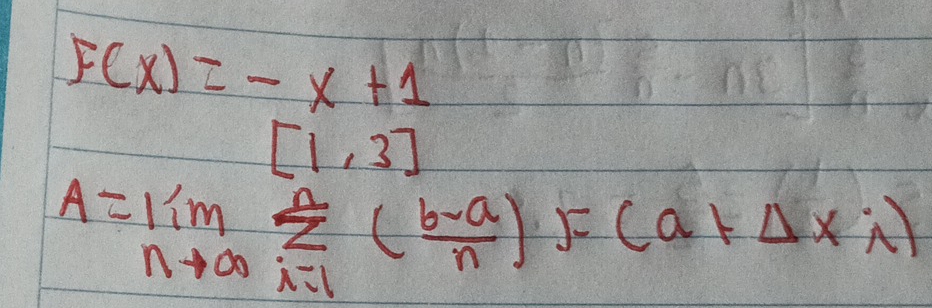 F(x) = - x + 1
[1, 3]
A = lím n→∞ n Σ i=1 (b-a/n) · F(a + Δ x i)